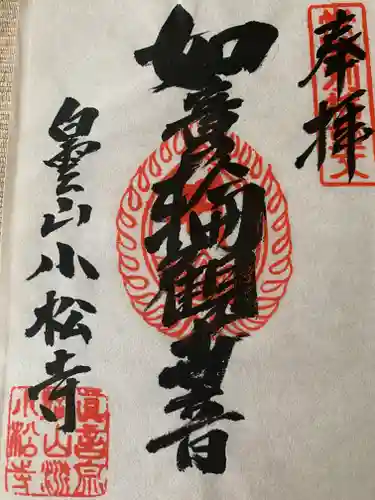 奉拝
如意輪観音
白雲山小松寺
真言宗
小松寺